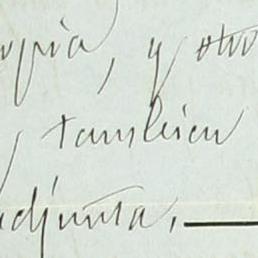 opia, y otro
, tambien
adjunta.—